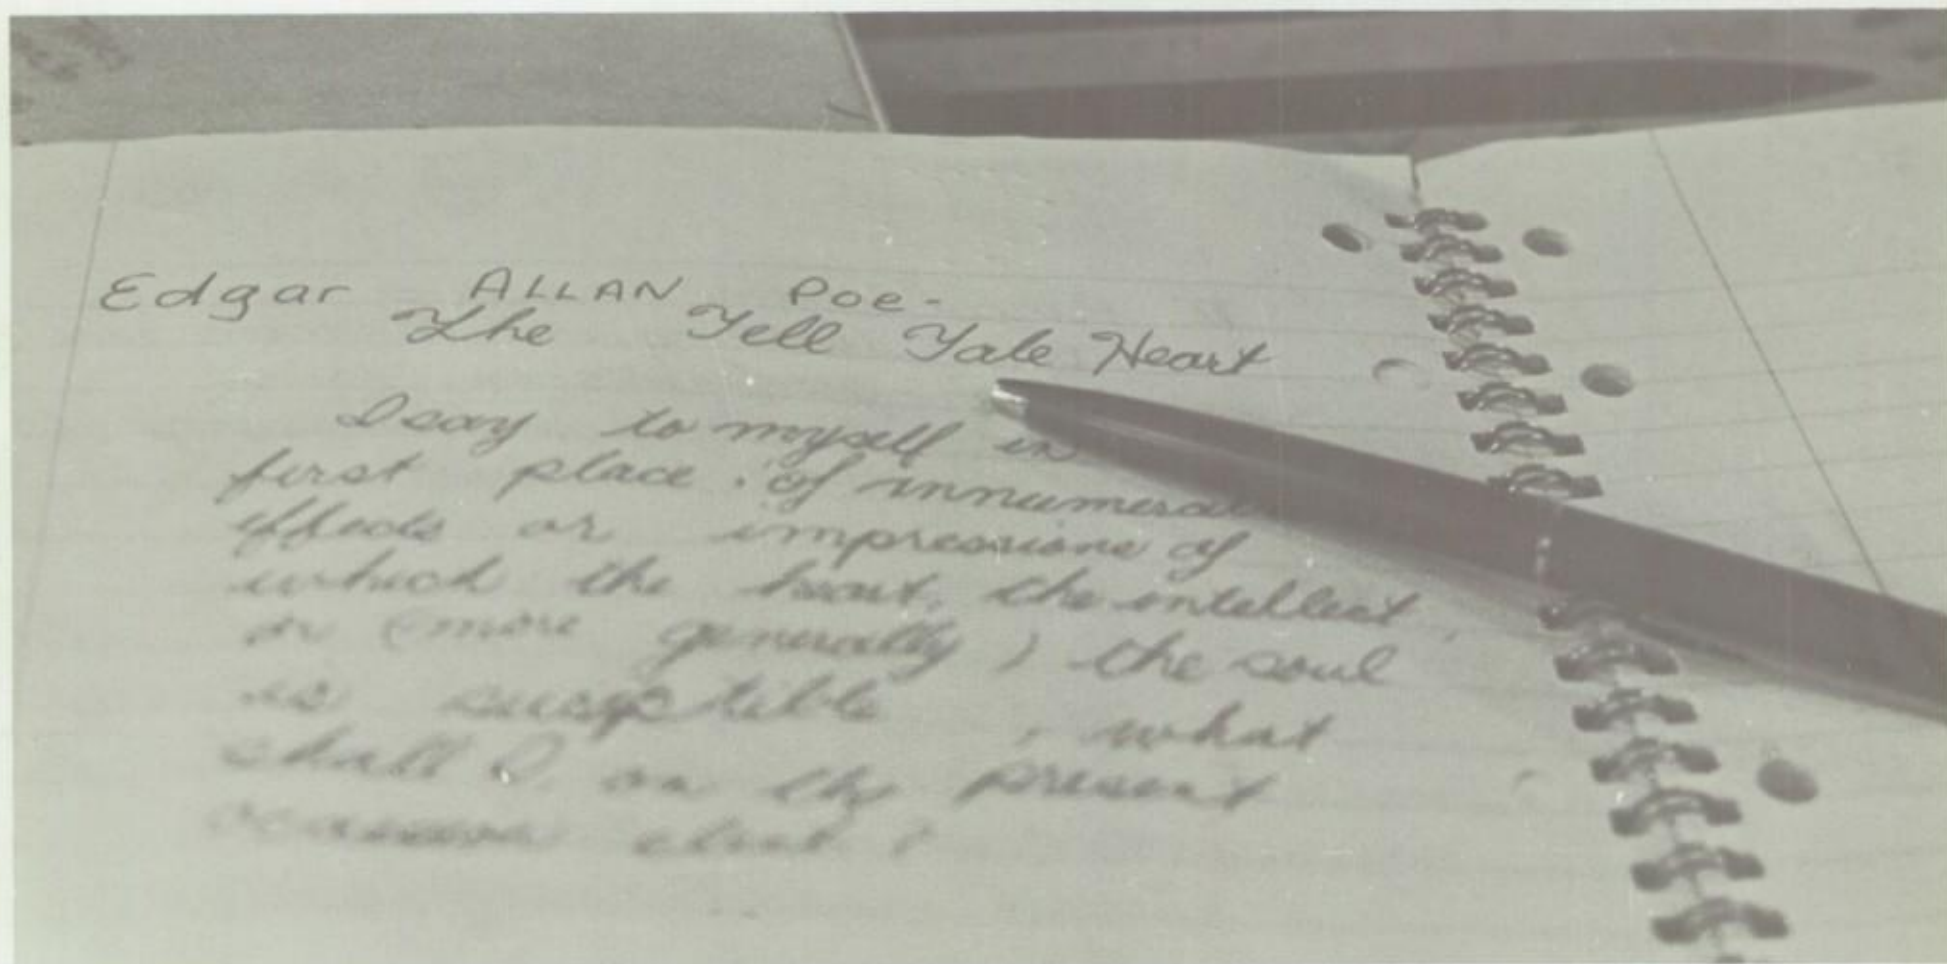 Edgar ALLAN Poe-
The Tell Tale Heart
I say to myself in
first place, of innumera
effects or impressions of
which the heart, the intellect,
or (more generally) the soul
is susceptible, what
shall I on the present
occasion elect?